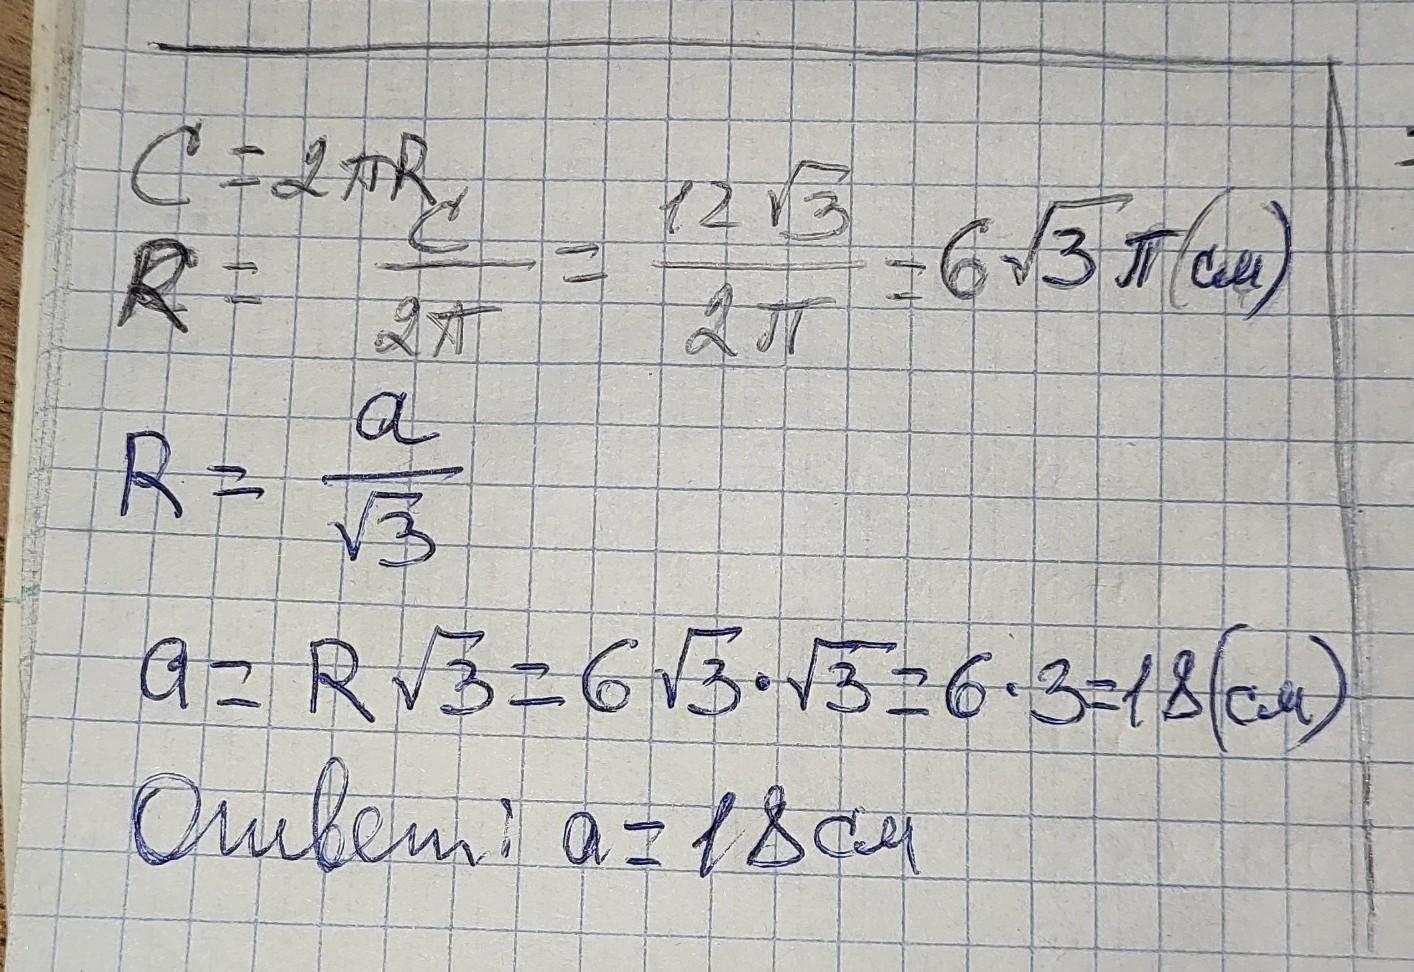 C = 2πR
R = C/2π = 12√3/2π = 6√3 π (см)
R = a/√3
a = R√3 = 6√3 · √3 = 6 · 3 = 18 (см)
Ответ: a = 18 см